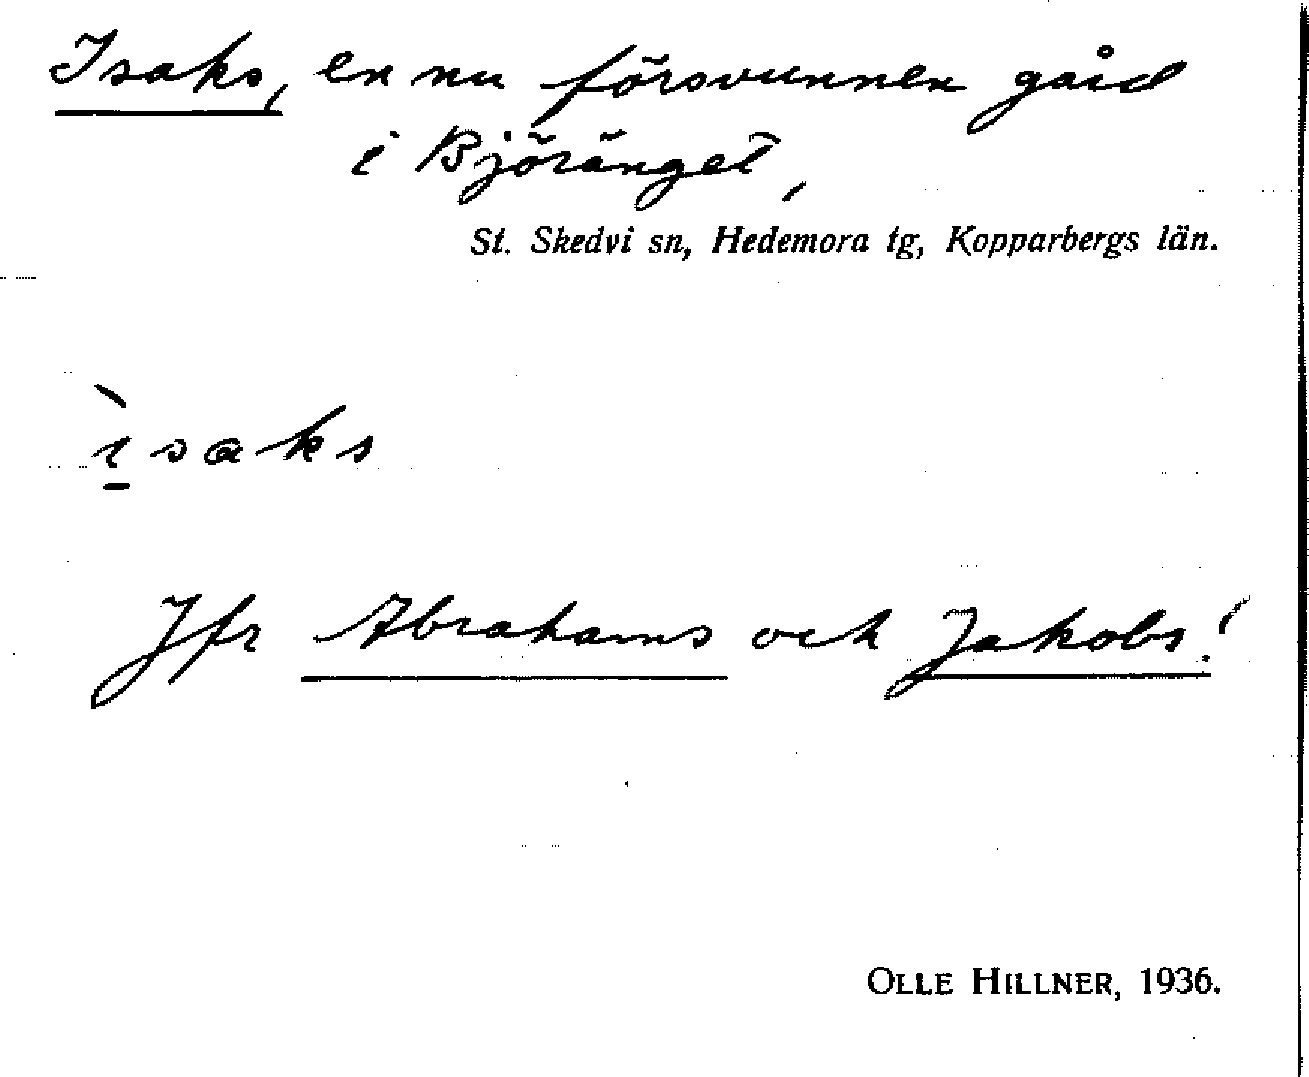 Isaks, en nu försvunnen gård
i Björänget,
St. Skedvi sn, Hedemora tg, Kopparbergs län.
ìsaks
Jfr Abrahams och Jakobs!
OLLE HILLNER, 1936.